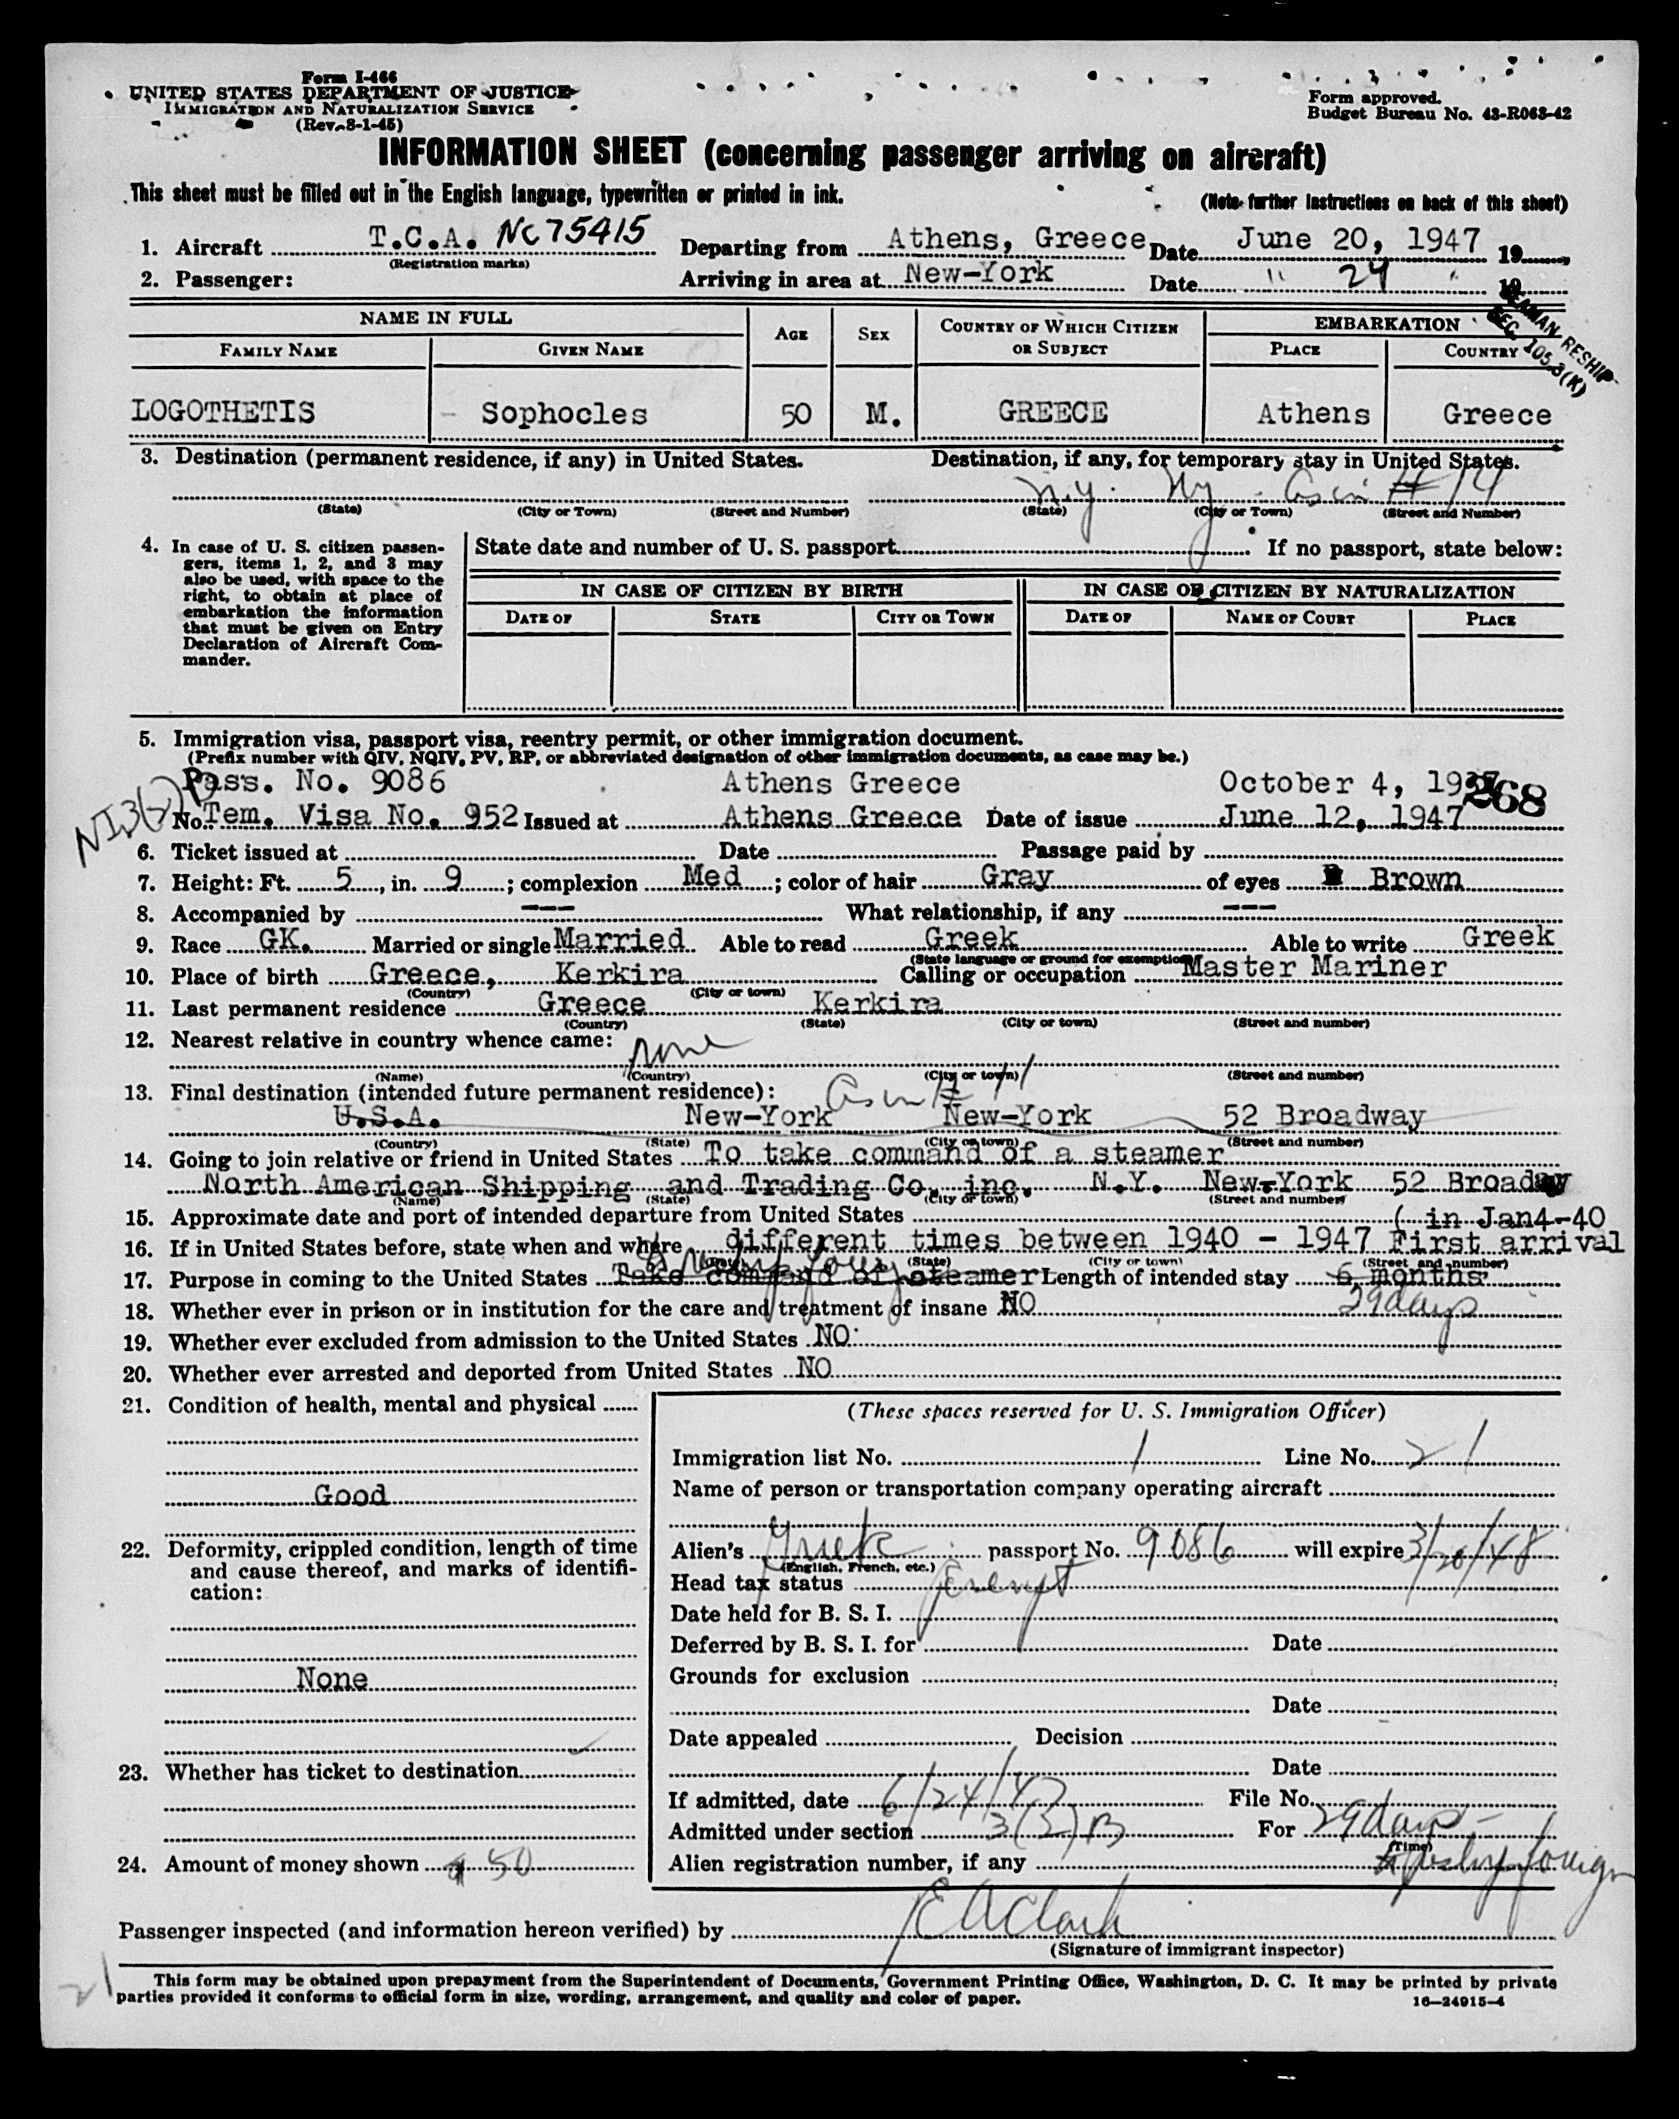 Form I-466
UNITED STATES DEPARTMENT OF JUSTICE
IMMIGRATION AND NATURALIZATION SERVICE
(Rev. 8-1-45)
Form approved.
Budget Bureau No. 43-R063-42
INFORMATION SHEET (concerning passenger arriving on aircraft)
This sheet must be filled out in the English language, typewritten or printed in ink.
(Note further instructions on back of this sheet)
1. Aircraft T.C.A. NC 75415 Departing from Athens, Greece Date June 20, 1947 19
(Registration marks)
2. Passenger: Arriving in area at New-York Date " 24 " 19
SEAMAN-RESHIP
SEC. 105.3(K)
NAME IN FULL AGE SEX COUNTRY OF WHICH CITIZEN OR SUBJECT EMBARKATION
FAMILY NAME GIVEN NAME PLACE COUNTRY
LOGOTHETIS - Sophocles 50 M. GREECE Athens Greece
3. Destination (permanent residence, if any) in United States. Destination, if any, for temporary stay in United States.
N.Y. NY - # 14
(State) (City or Town) (Street and Number) (State) (City or Town) (Street and Number)
4. In case of U. S. citizen passen-
gers, items 1, 2, and 3 may
also be used, with space to the
right, to obtain at place of
embarkation the information
that must be given on Entry
Declaration of Aircraft Com-
mander.
State date and number of U. S. passport If no passport, state below:
IN CASE OF CITIZEN BY BIRTH IN CASE OF CITIZEN BY NATURALIZATION
DATE OF STATE CITY OR TOWN DATE OF NAME OF COURT PLACE
5. Immigration visa, passport visa, reentry permit, or other immigration document.
(Prefix number with QIV, NQIV, PV, RP, or abbreviated designation of other immigration documents, as case may be.)
Pass. No. 9086 Athens Greece October 4, 1937
268
NI 3(2)
No. Tem. Visa No. 952 Issued at Athens Greece Date of issue June 12, 1947
6. Ticket issued at Date Passage paid by
7. Height: Ft. 5, in. 9; complexion Med; color of hair Gray of eyes Brown
8. Accompanied by --- What relationship, if any ---
9. Race GK. Married or single Married Able to read Greek Able to write Greek
(State language or ground for exemption)
10. Place of birth Greece, Kerkira Calling or occupation Master Mariner
(Country) (City or town)
11. Last permanent residence Greece Kerkira
(Country) (State) (City or town) (Street and number)
12. Nearest relative in country whence came:
none
(Name) (Country) (City or town) (Street and number)
13. Final destination (intended future permanent residence):
U.S.A. New-York New-York 52 Broadway
(Country) (State) (City or town) (Street and number)
14. Going to join relative or friend in United States To take command of a steamer
North American Shipping and Trading Co. inc. N.Y. New-York 52 Broadway
(Name) (State) (City or town) (Street and number)
15. Approximate date and port of intended departure from United States ( in Jan4-40
16. If in United States before, state when and where different times between 1940 - 1947 First arrival
(State) (City or town) (Street and number)
17. Purpose in coming to the United States Take command of steamer Length of intended stay 6 months
29 days
18. Whether ever in prison or in institution for the care and treatment of insane NO
19. Whether ever excluded from admission to the United States NO
20. Whether ever arrested and deported from United States NO
21. Condition of health, mental and physical
Good
22. Deformity, crippled condition, length of time
and cause thereof, and marks of identifi-
cation:
None
23. Whether has ticket to destination
24. Amount of money shown $ 50
(These spaces reserved for U. S. Immigration Officer)
Immigration list No. 1 Line No. 21
Name of person or transportation company operating aircraft
Alien's Greek passport No. 9086 will expire 3/20/48
(English, French, etc.)
Head tax status Exempt
Date held for B. S. I.
Deferred by B. S. I. for Date
Grounds for exclusion
Date
Date appealed Decision
Date
If admitted, date 6/24/47 File No.
Admitted under section 3(2)B For 29 days -
(Time)
Alien registration number, if any to reship foreign
Passenger inspected (and information hereon verified) by E A Clark
(Signature of immigrant inspector)
21
This form may be obtained upon prepayment from the Superintendent of Documents, Government Printing Office, Washington, D. C. It may be printed by private
parties provided it conforms to official form in size, wording, arrangement, and quality and color of paper.
16-24915-4